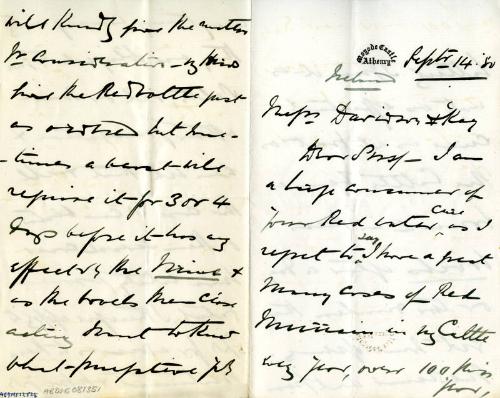 Moyode Castle
Athenry.
Septr 14 '80
Ireland
Messrs Davidson & Kay
Dear Sirs - I am
a large consumer of
your Red water Cure, as I
regret to say I have a great
many cases of Red
Murrain in my Cattle
every year, over 100 this
year,
will kindly give the matter
yr consideration - my Herd
give the Red bottle just
as ordered but some-
-times a beast will
require it for 3 or 4
days before it has any
effect on the Urine &
as the bowels then cease
acting I want to know
what purgative